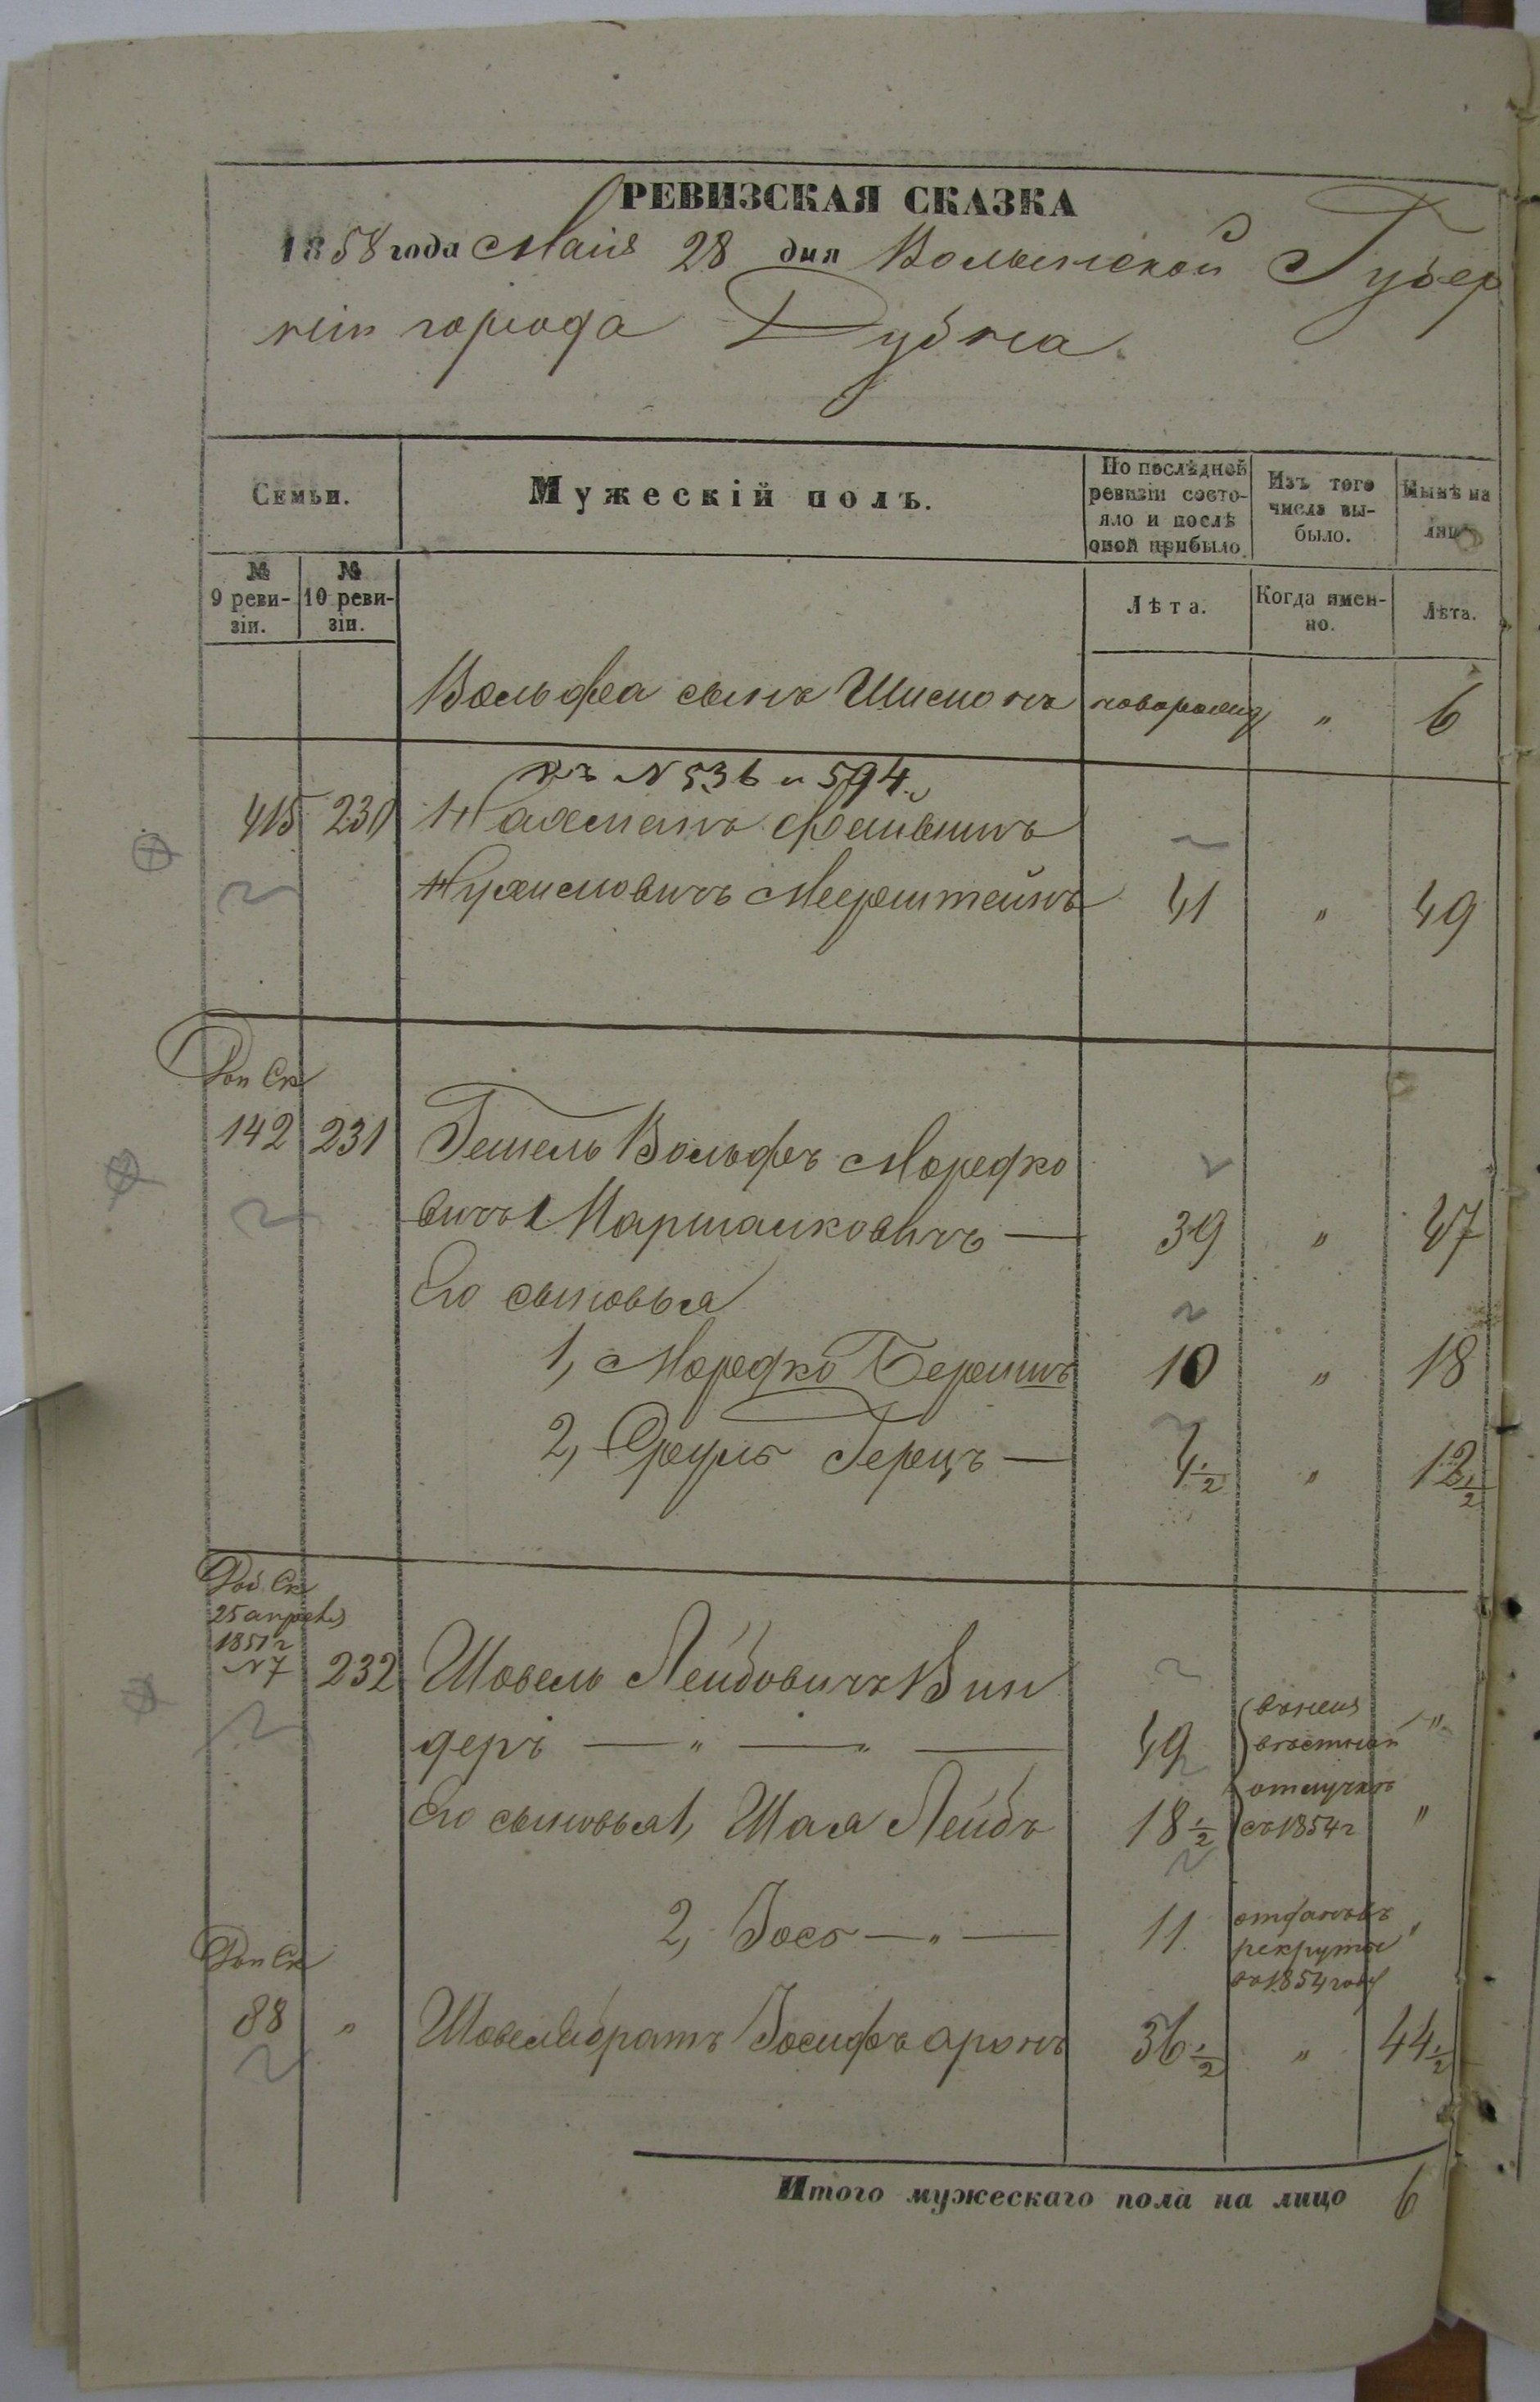 РЕВИЗСКАЯ СКАЗКА
1858 года Маія 28 дня Волынской Губер
ніи города Дубна.
Семьи.
Мужескій полъ.
По послѣдней ревизіи состояло и послѣ оной прибыло.
Изъ того числа выбыло.
Нынѣ на лицо
№ 9 ревизіи.
№ 10 ревизіи.
Лѣта.
Когда именно.
Лѣта.
Вольфа сынъ Шисмонъ новорожд " 6
къ N 536 и 594.
415 230 Нахманъ Файвишъ
Нухимовичъ Меерштейнъ 41 " 49
Доп Ск
142 231 Гешель Вольфъ Мордко
вичъ Маршалковичъ — 39 " 47
Его сыновья
1, Мордко Беришъ 10 " 18
2, Сруль Герцъ — 4 1/2 " 12 1/2
Доб. Ск
25 апрель
1851 г
N 7 232 Шовель Лейбовичъ Бин
деръ — " — " — 49 "
Его сыновья 1, Шая Лейбъ 18 1/2 "
отлучкѣ
съ 1854 г
2, Іось — " — 11 "
отданъ въ
рекруты
въ 1854 году
Доп Ск
88 " Шовеля братъ Іосифъ аронъ 36 1/2 " 44 1/2
Итого мужескаго пола на лицо 6